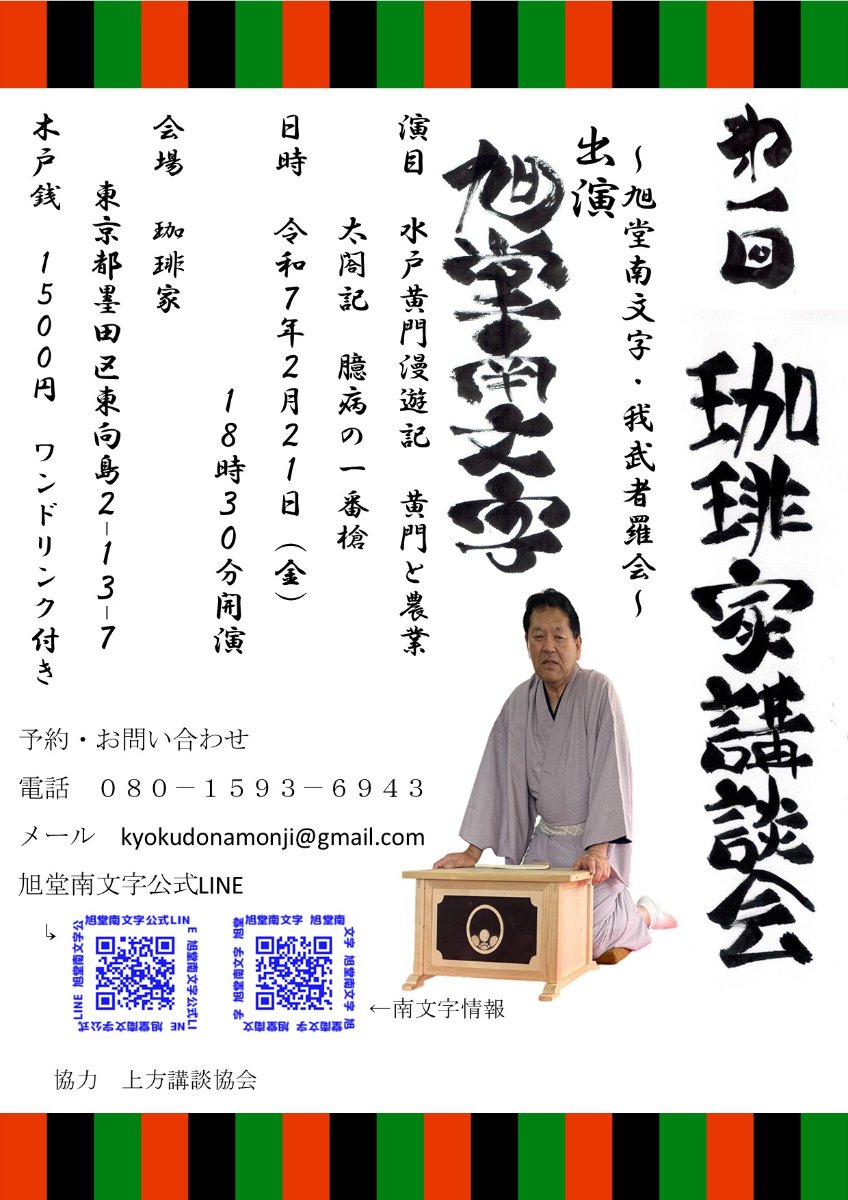 第一回 珈琲家講談会
～旭堂南文字・我武者羅会～
出演
旭堂南文字
演目 水戸黄門漫遊記 黄門と農業
太閤記 臆病の一番槍
日時 令和7年2月21日(金)
18時30分開演
会場 珈琲家
東京都墨田区東向島2-13-7
木戸銭 1500円 ワンドリンク付き
予約・お問い合わせ
電話 ０８０－１５９３－６９４３
メール kyokudonamonji@gmail.com
旭堂南文字公式LINE
↳
旭堂南文字公式LINE 旭堂南文字公式LINE 旭堂南文字公式LINE 旭堂南文字公
旭堂南文字 旭堂南文字 旭堂南文字 旭堂南文字 旭堂南文字 旭堂南文字
←南文字情報
協力 上方講談協会